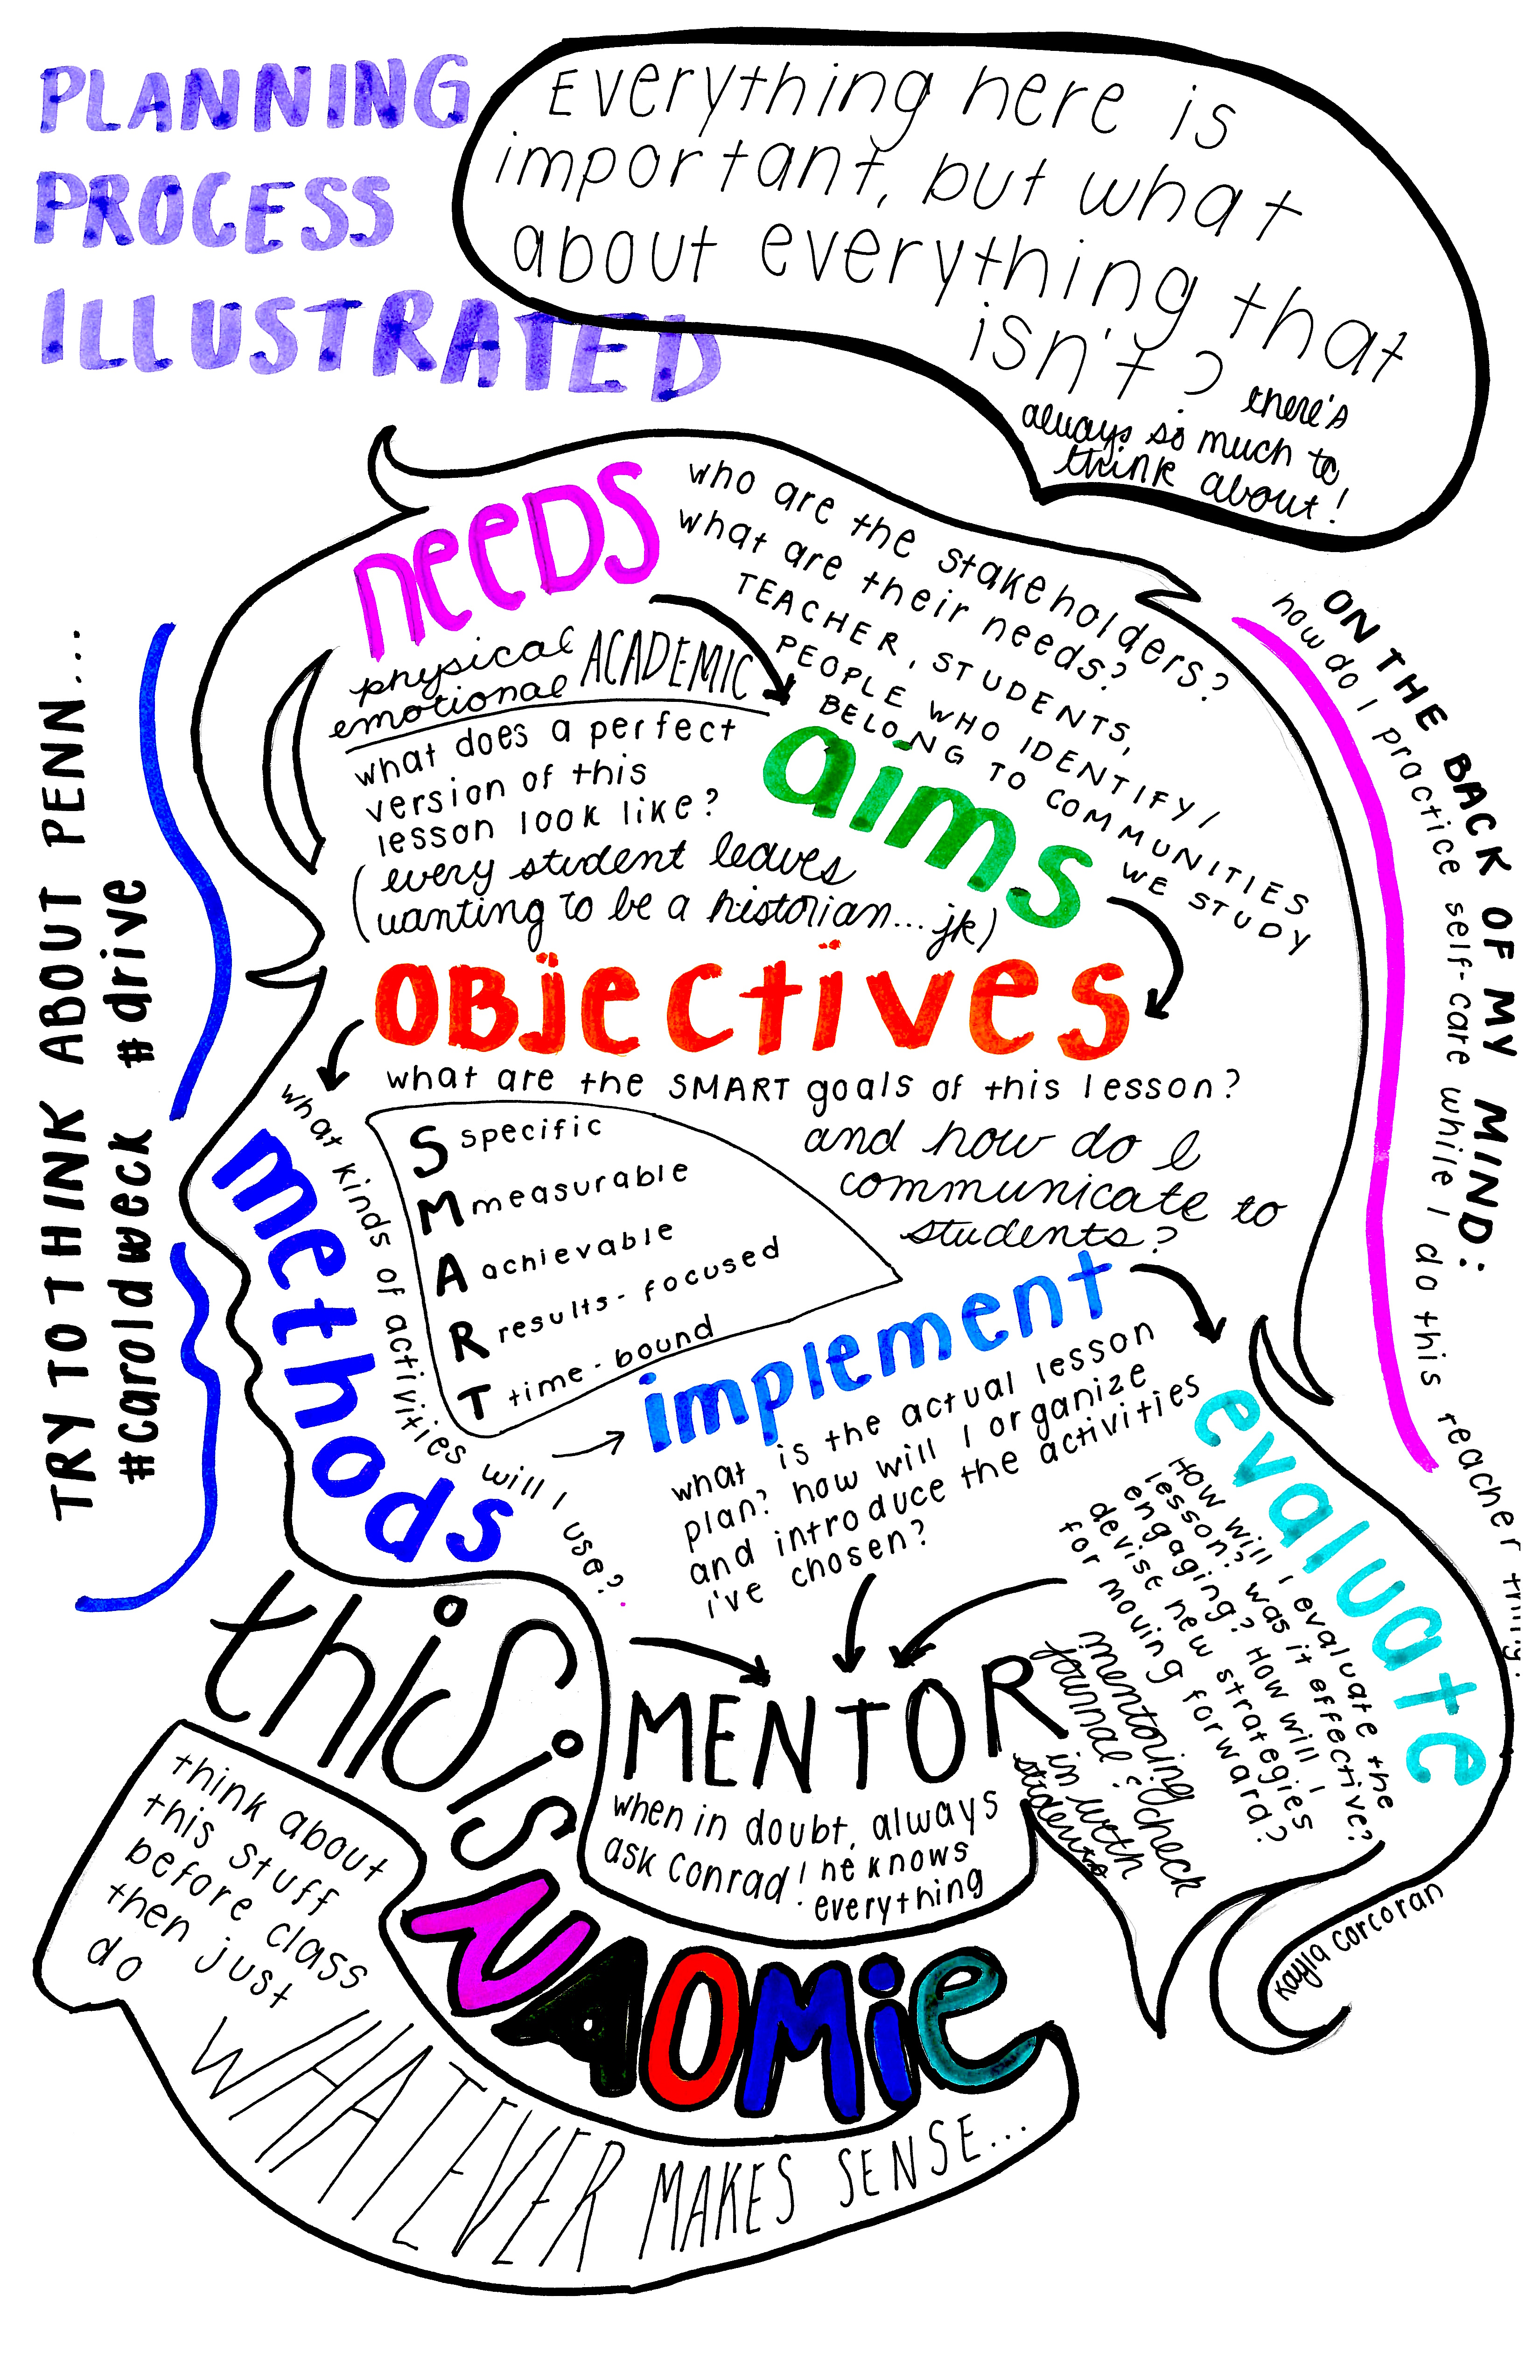 PLANNING
PROCESS
ILLUSTRATED
Everything here is
important, but what
about everything that
isn't? there's
always so much to
think about!
NEEDS
who are the stakeholders?
what are their needs?
TEACHER, STUDENTS,
PEOPLE WHO IDENTIFY/
BELONG TO COMMUNITIES
WE STUDY
physical
emotional
ACADEMIC
aims
what does a perfect
version of this
lesson look like?
(every student leaves
wanting to be a historian... jk)
OBJectives
what are the SMART goals of this lesson?
and how do I
communicate to
students?
S specific
M measurable
A achievable
R results-focused
T time-bound
methods
what kinds of activities will I use?
implement
what is the actual lesson
plan? how will I organize
and introduce the activities
i've chosen?
evaluate
How will I evaluate the
lesson? was it effective?
engaging? How will I
devise new strategies
for moving forward?
mentoring
journal? check
in with
students
MENTOR
when in doubt, always
ask Conrad! he knows
everything
this is
NAOMIE
think about
this stuff
before class
then just
do
WHATEVER MAKES SENSE...
TRY TO THINK ABOUT PENN...
#caroldweck #drive
ON THE BACK OF MY MIND:
how do I practice self-care while I do this teacher thing.
Kayla Corcoran